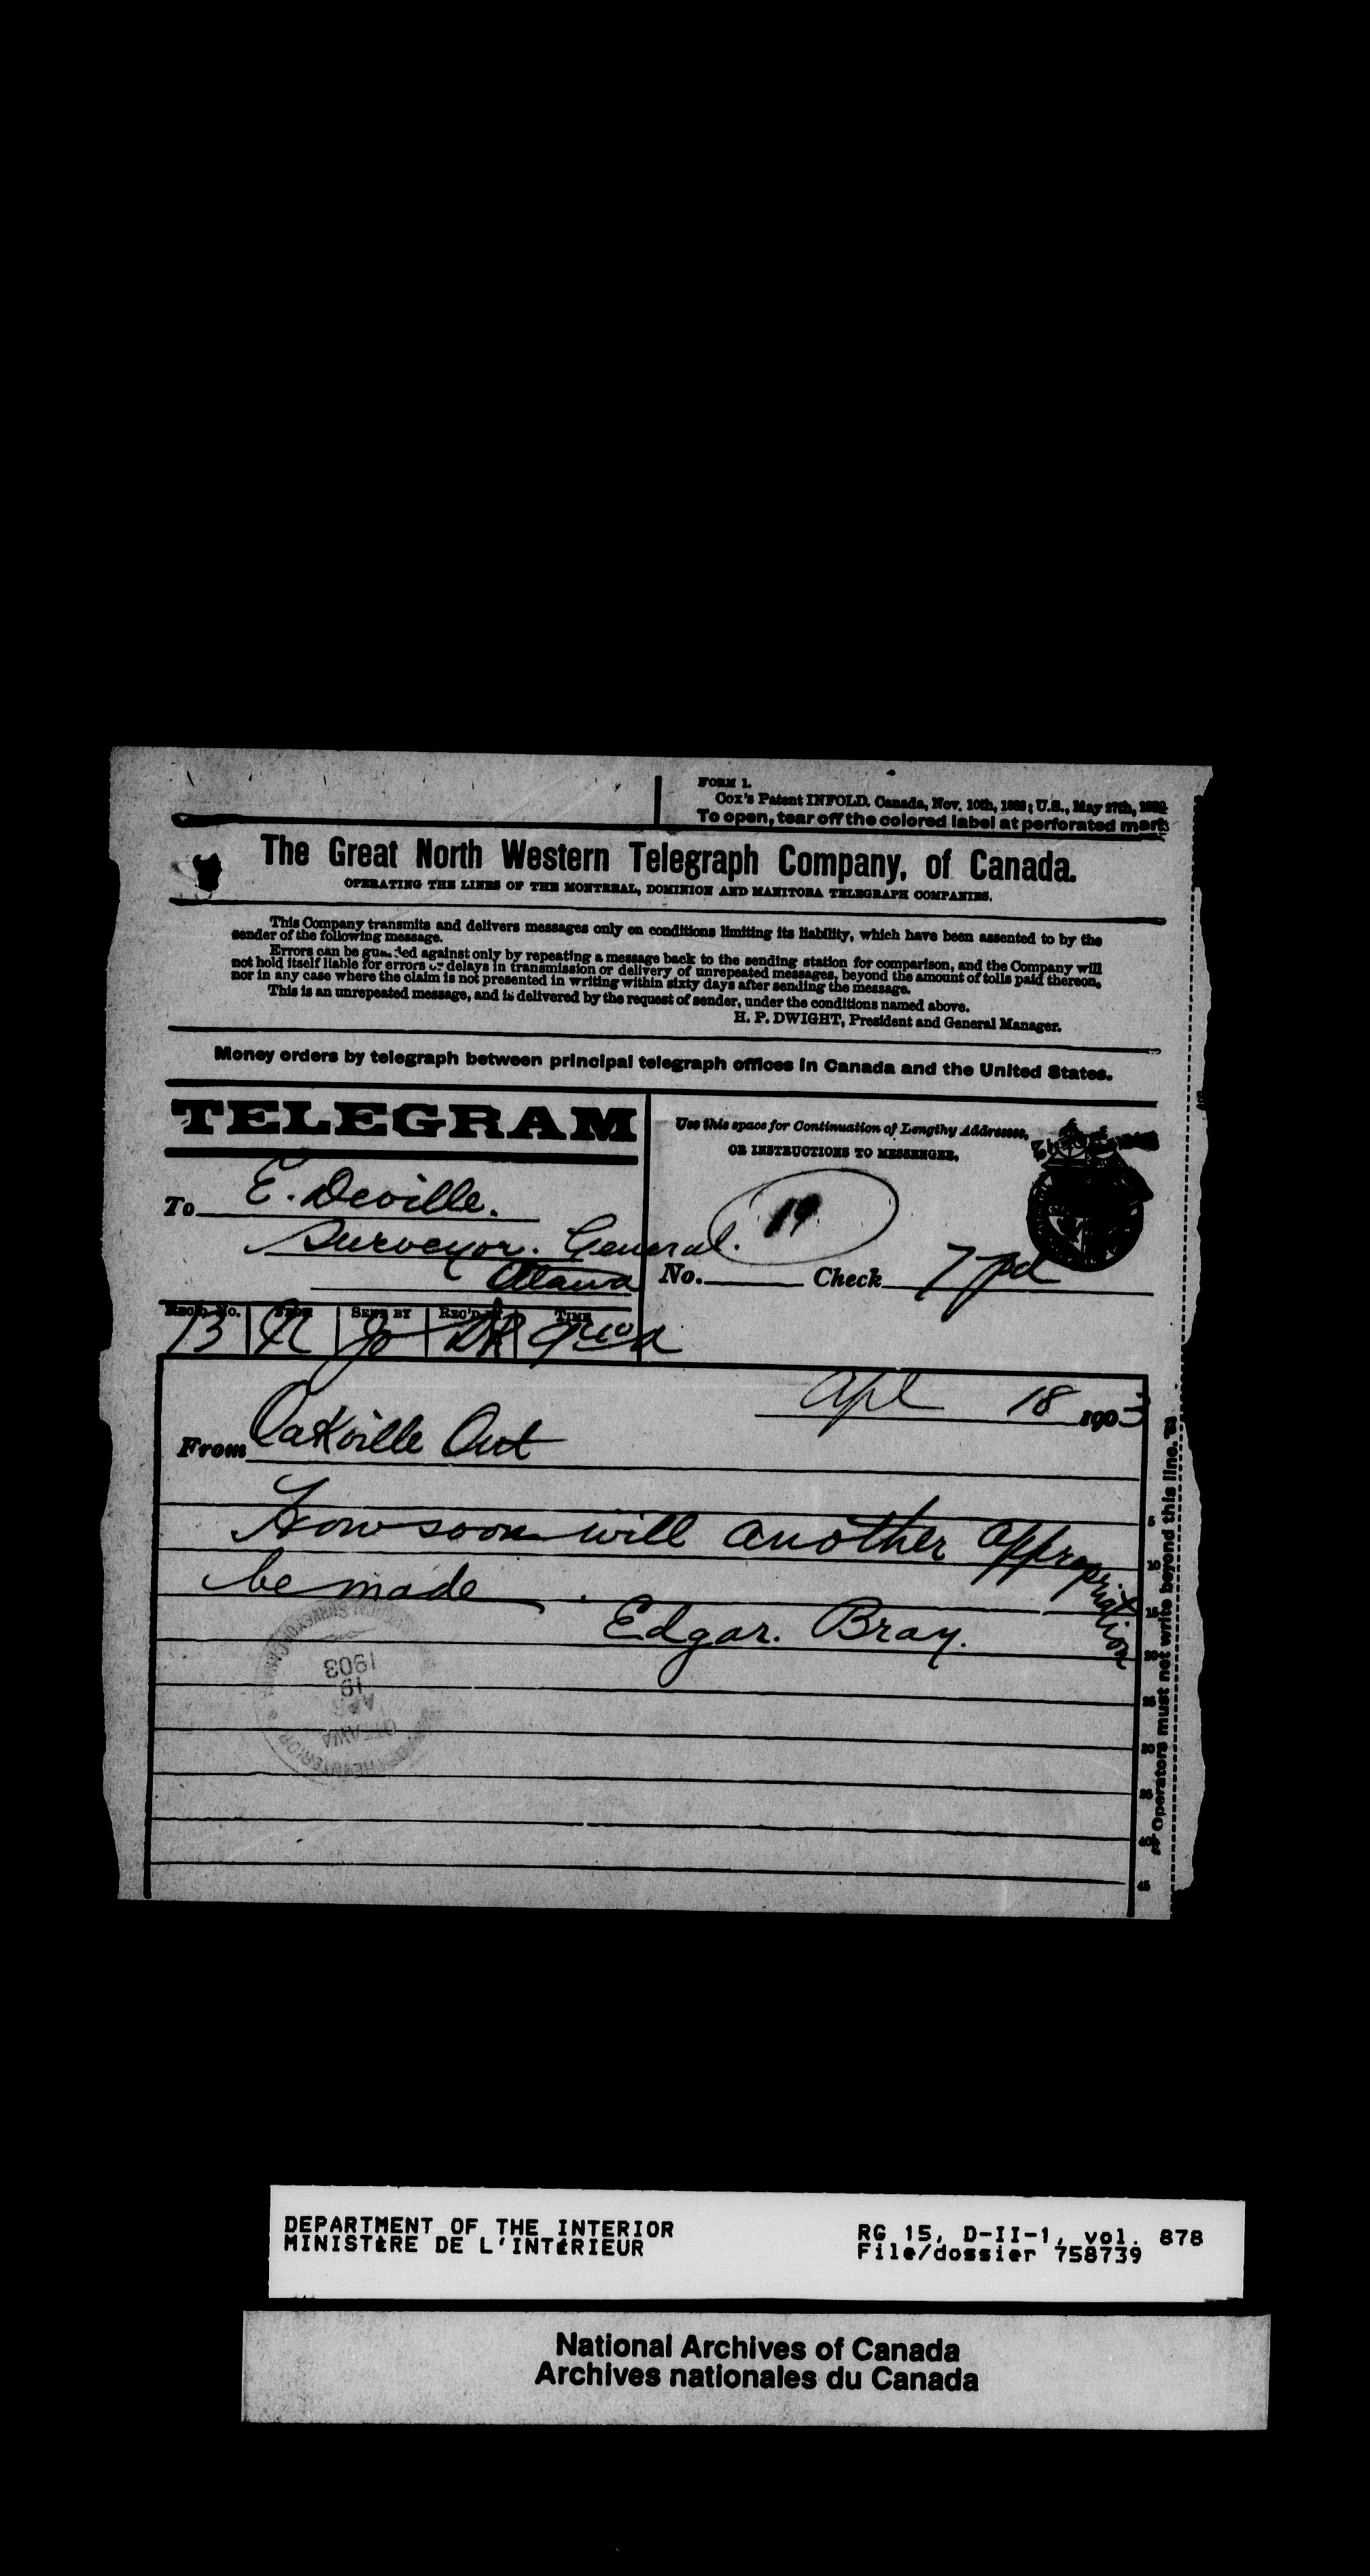 FORM 1.
Cox's Patent INFOLD. Canada, Nov. 10th, 1889; U.S., May 27th,
To open, tear off the colored label at perforated mark
The Great North Western Telegraph Company, of Canada.
OPERATING THE LINES OF THE MONTREAL, DOMINION AND MANITOBA TELEGRAPH COMPANIES.
This Company transmits and delivers messages only on conditions limiting its liability, which have been assented to by the
sender of the following message.
Errors can be guarded against only by repeating a message back to the sending station for comparison, and the Company will
not hold itself liable for errors or delays in transmission or delivery of unrepeated messages, beyond the amount of tolls paid thereon,
nor in any case where the claim is not presented in writing within sixty days after sending the message.
This is an unrepeated message, and is delivered by the request of sender, under the conditions named above.
H. P. DWIGHT, President and General Manager.
Money orders by telegraph between principal telegraph offices in Canada and the United States.
TELEGRAM
Use this space for Continuation of Lengthy Addresses,
OR INSTRUCTIONS TO MESSENGER.
To E. Deville.
Surveyor. General.
Ottawa
19
No. Check 7 pd
REC'D NO. FROM SENT BY REC'D BY TIME
13
Apl 18 1903
From Oakville Ont
How soon will another appropriation
be made.
Edgar. Bray.
1903
19
APR
OTTAWA
5
10
15
20
25
30
35
40
45
Operators must not write beyond this line.
DEPARTMENT OF THE INTERIOR
MINISTÈRE DE L'INTÉRIEUR
RG 15, D-II-1, vol. 878
File/dossier 758739
National Archives of Canada
Archives nationales du Canada